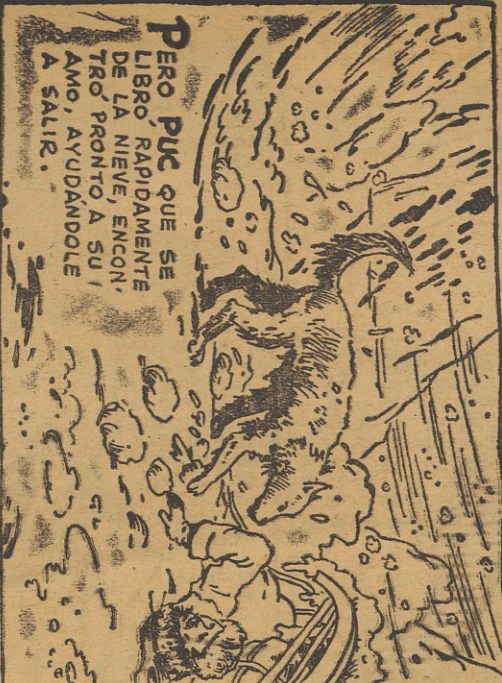 PERO PUC QUE SE
LIBRÓ RAPIDAMENTE
DE LA NIEVE, ENCON-
TRÓ PRONTO A SU
AMO, AYUDANDOLE
A SALIR.